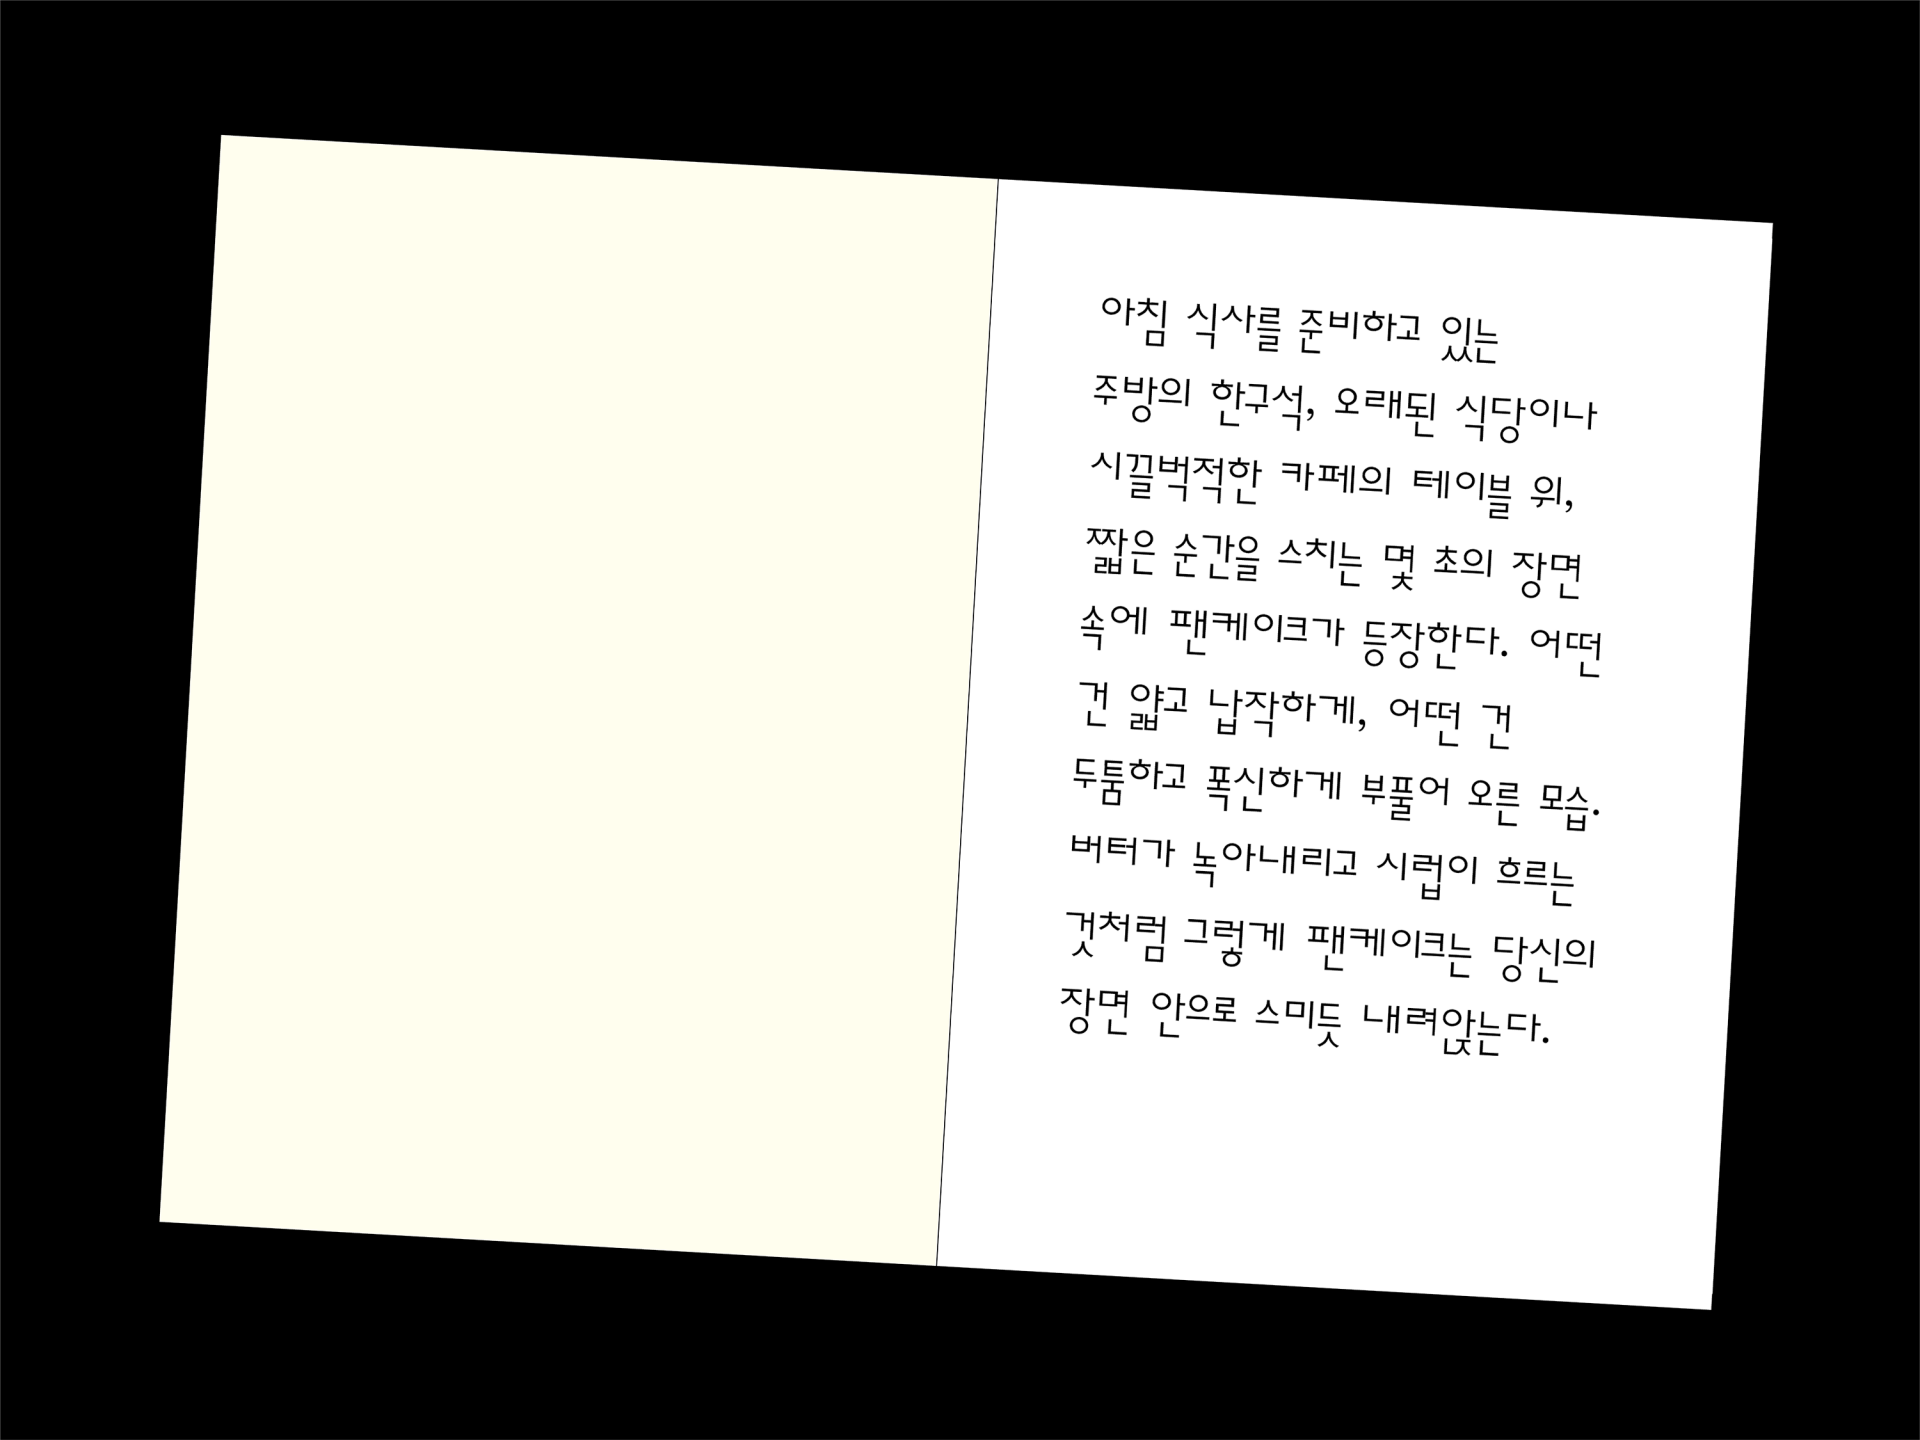 아침 식사를 준비하고 있는
주방의 한구석, 오래된 식당이나
시끌벅적한 카페의 테이블 위,
짧은 순간을 스치는 몇 초의 장면
속에 팬케이크가 등장한다. 어떤
건 얇고 납작하게, 어떤 건
두툼하고 폭신하게 부풀어 오른 모습.
버터가 녹아내리고 시럽이 흐르는
것처럼 그렇게 팬케이크는 당신의
장면 안으로 스미듯 내려앉는다.